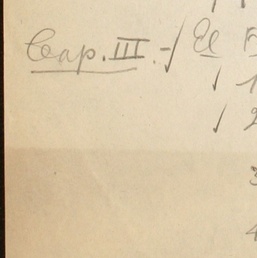 Cap. III.- √ El
√ 1
√ 2
3
4